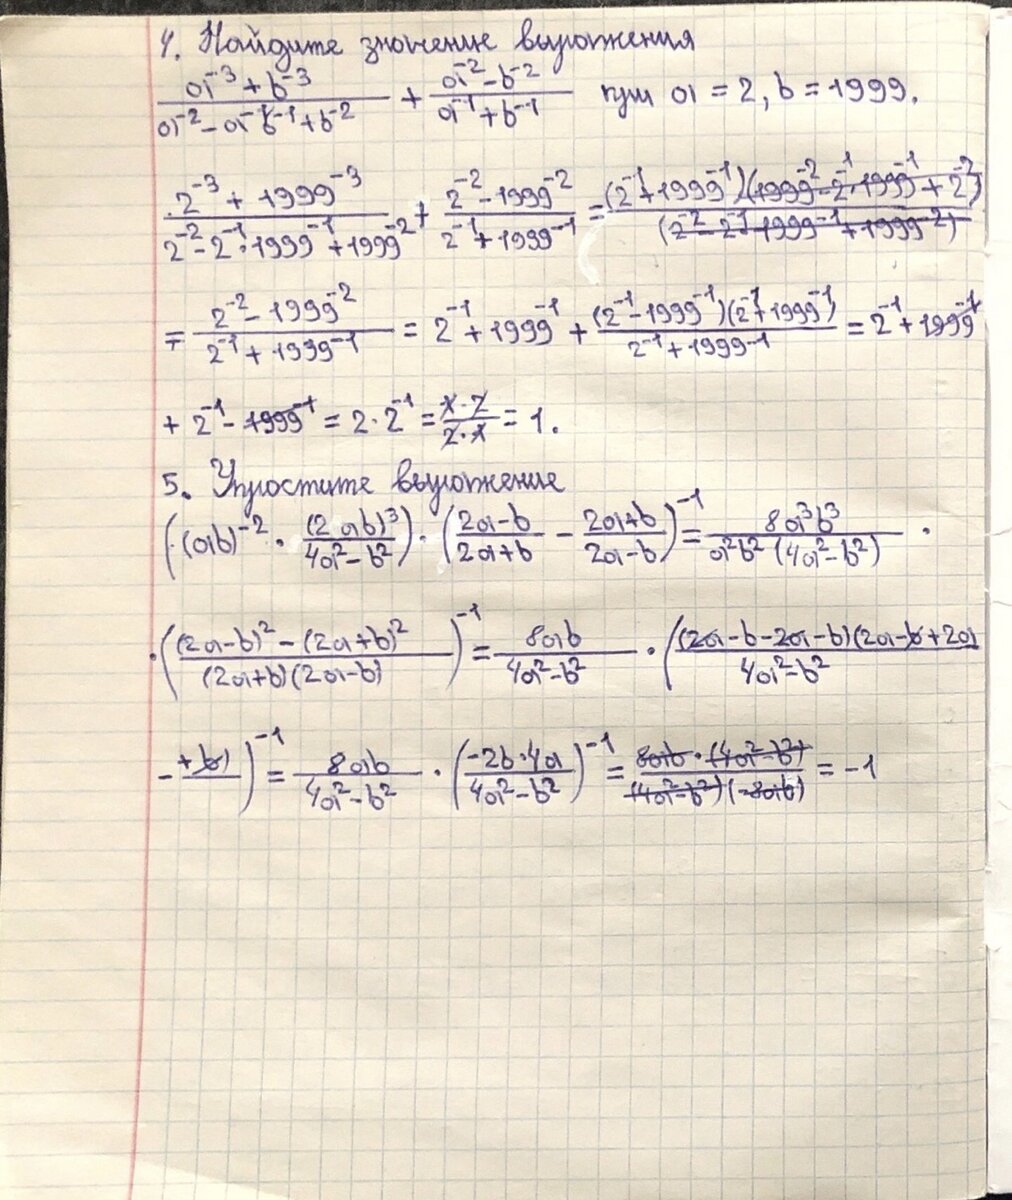 4. Найдите значение выражения
(a⁻³ + b⁻³)/(a⁻² - a⁻¹b⁻¹ + b⁻²) + (a⁻² - b⁻²)/(a⁻¹ + b⁻¹) при a = 2, b = 1999.
(2⁻³ + 1999⁻³)/(2⁻² - 2⁻¹ · 1999⁻¹ + 1999⁻²) + (2⁻² - 1999⁻²)/(2⁻¹ + 1999⁻¹) = (2⁻¹ + 1999⁻¹)(1999⁻² - 2⁻¹ · 1999⁻¹ + 2⁻²)/(2⁻² - 2⁻¹ · 1999⁻¹ + 1999⁻²)
∓ (2⁻² - 1999⁻²)/(2⁻¹ + 1999⁻¹) = 2⁻¹ + 1999⁻¹ + (2⁻¹ - 1999⁻¹)(2⁻¹ + 1999⁻¹)/(2⁻¹ + 1999⁻¹) = 2⁻¹ + 1999⁻¹
+ 2⁻¹ - 1999⁻¹ = 2 · 2⁻¹ = (1 · 2)/(2 · 1) = 1.
5. Упростите выражение
((ab)⁻² · (2ab)³/(4a² - b²)) · ((2a - b)/(2a + b) - (2a + b)/(2a - b))⁻¹ = 8a³b³/(a²b²(4a² - b²)) ·
· (((2a - b)² - (2a + b)²)/((2a + b)(2a - b)))⁻¹ = 8ab/(4a² - b²) · ((2a - b - 2a - b)(2a - b + 2a/(4a² - b²)
- + b))⁻¹ = 8ab/(4a² - b²) · ((-2b · 4a)/(4a² - b²))⁻¹ = (8ab · (4a² - b²))/((4a² - b²)(-8ab)) = -1